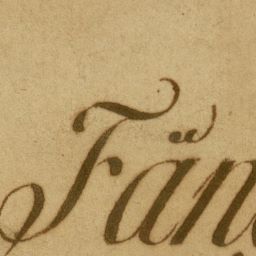 Fän